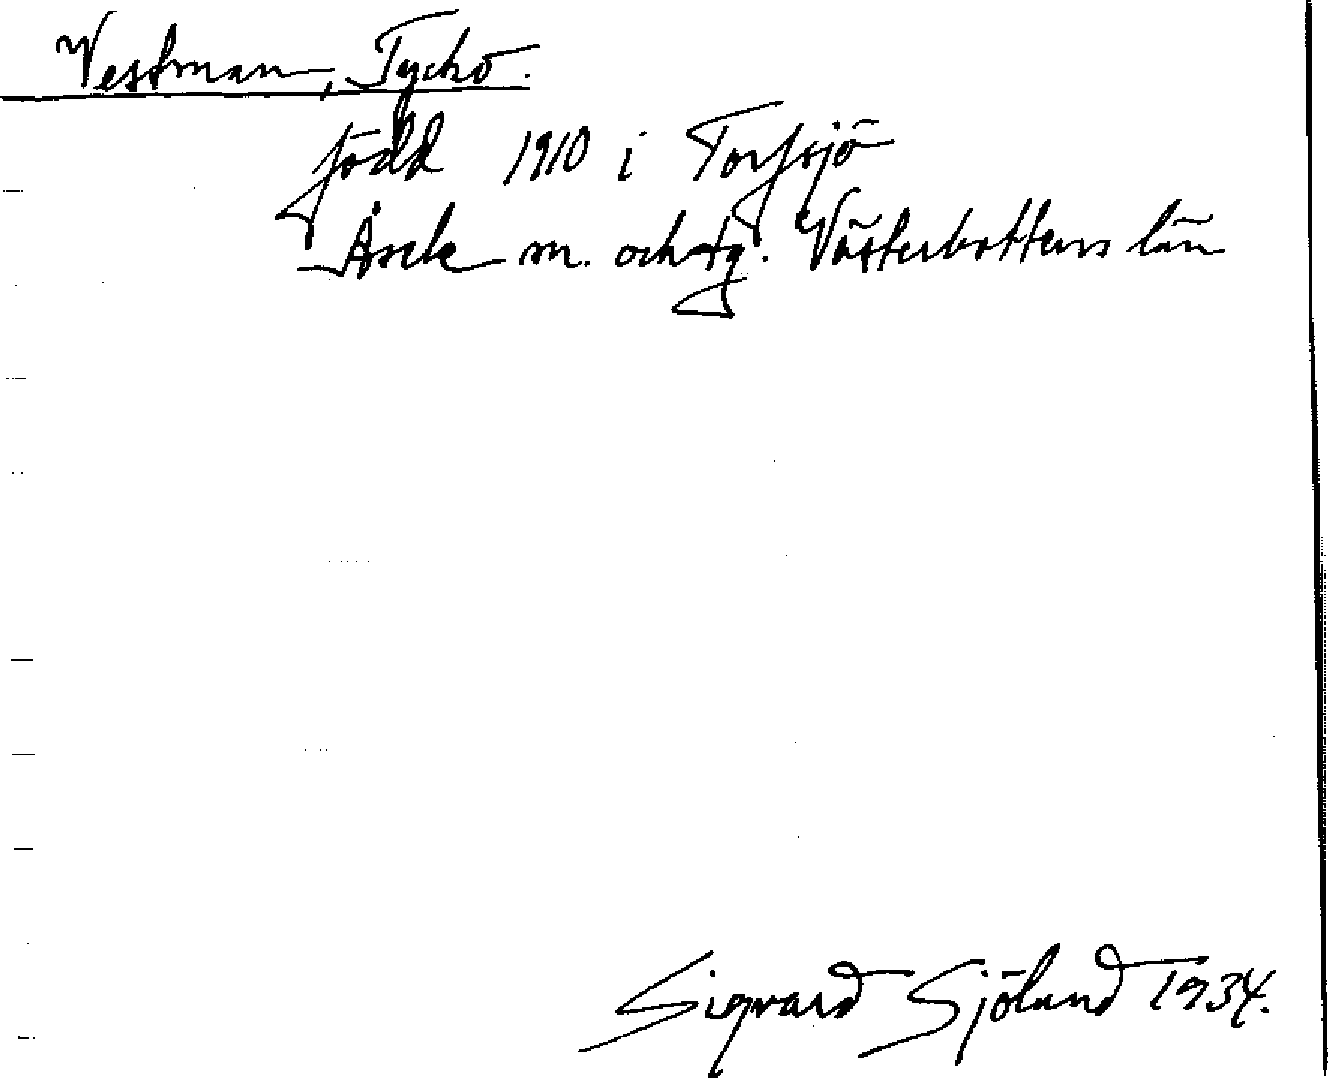 Vestman, Tycho.
född 1910 i Torfsjö
Åsele m. och fg. Västerbottens län
Sigvard Sjölund 1934.